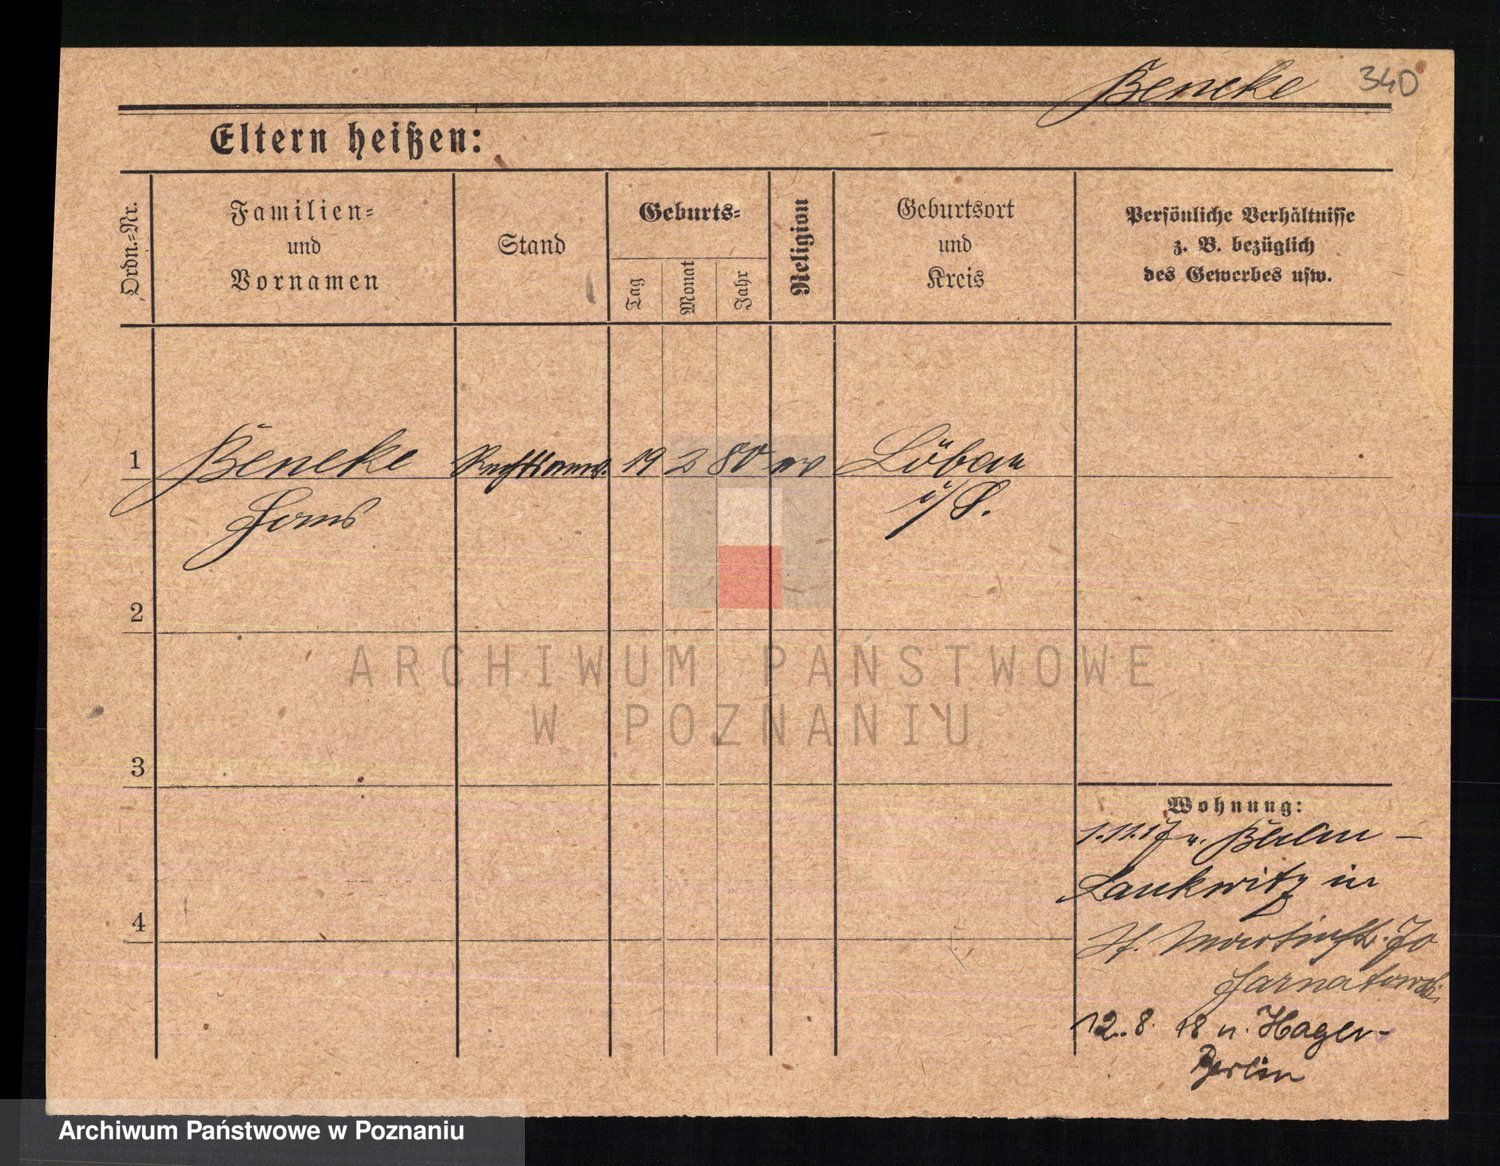 Beneke 340
Eltern heißen:
Ordn.-Nr.
Familien-
und
Vornamen
Stand
Geburts-
Tag
Monat
Jahr
Religion
Geburtsort
und
Kreis
Persönliche Verhältnisse
z. B. bezüglich
des Gewerbes usw.
1 Beneke Rechtsanw. 19 2 80 ev Löbau
Hans i/S.
2
ARCHIWUM PAŃSTWOWE
W POZNANIU
3
Wohnung:
1.11.17 v. Berlin-
Lankwitz in
St. Martinstr. 70
12.8.18 n.
Berlin
4
Archiwum Państwowe w Poznaniu